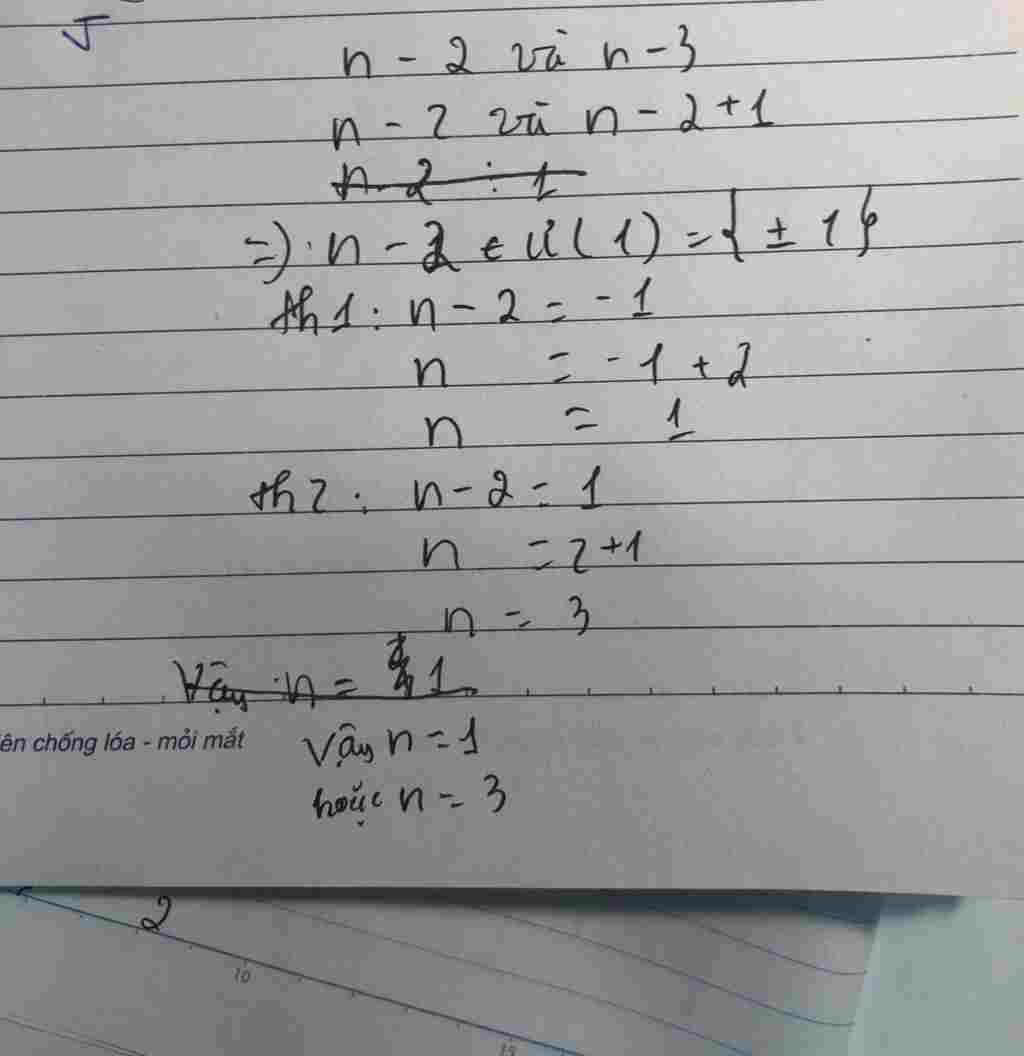 n - 2 và n - 3
n - 2 và n - 2 + 1
n - 2 : 1
=) . n - 2 ∈ Ư ( 1 ) = { ± 1 }
th1 : n - 2 = - 1
n = - 1 + 2
n = 1
th2 : n - 2 = 1
n = 2 + 1
n = 3
Vậy n = 1
ên chống lóa - mỏi mắt
Vậy n = 1
hoặc n = 3
2
10
15